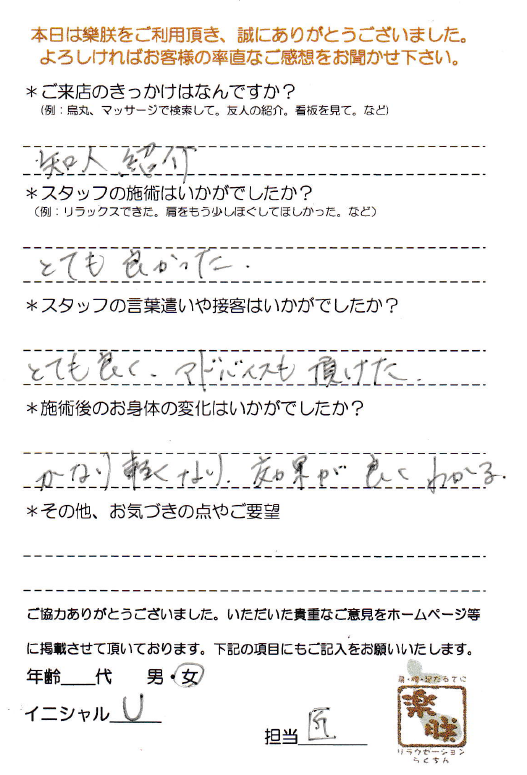 本日は樂朕をご利用頂き、誠にありがとうございました。
よろしければお客様の率直なご感想をお聞かせ下さい。
＊ご来店のきっかけはなんですか？
（例：烏丸、マッサージで検索して。友人の紹介。看板を見て。など）
知人 紹介
＊スタッフの施術はいかがでしたか？
（例：リラックスできた。肩をもう少しほぐしてほしかった。など）
とても 良かった.
＊スタッフの言葉遣いや接客はいかがでしたか？
とても良く、アドバイスも 頂けた.
＊施術後のお身体の変化はいかがでしたか？
かなり 軽くなり、効果が 良く わかる.
＊その他、お気づきの点やご要望
ご協力ありがとうございました。いただいた貴重なご意見をホームページ等
に掲載させて頂いております。下記の項目にもご記入をお願いいたします。
年齢＿＿代 男・女
イニシャル U
担当 匠
樂朕
リラクゼーション
らくちん